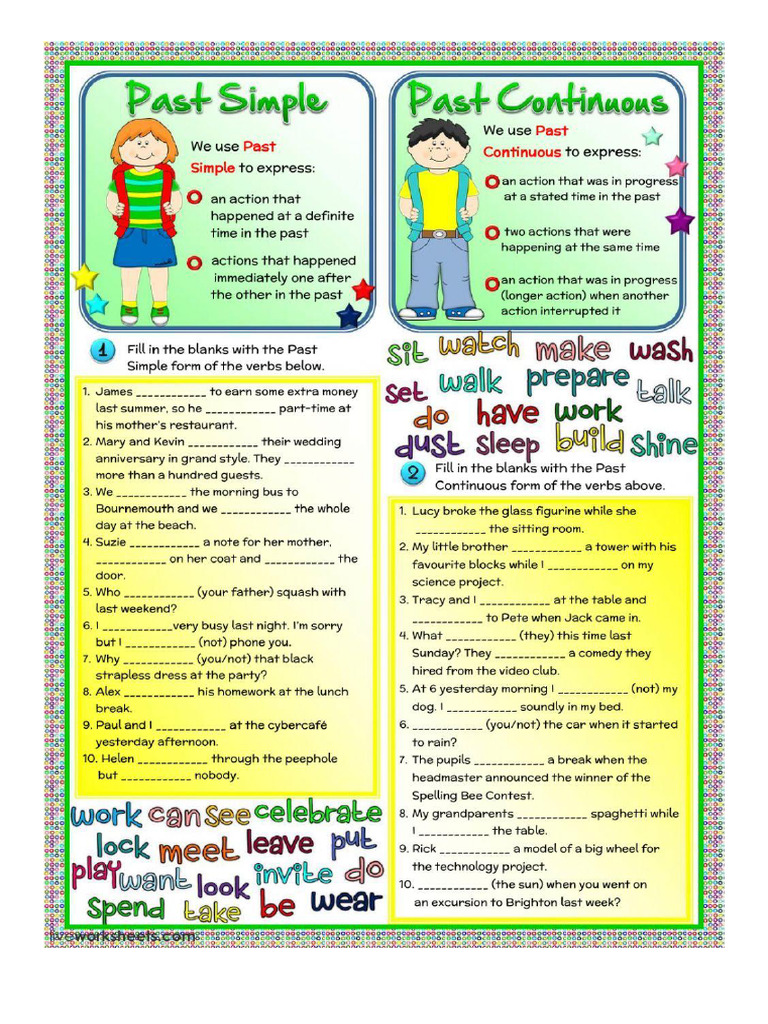 Past Simple
We use Past
Simple to express:
an action that
happened at a definite
time in the past
actions that happened
immediately one after
the other in the past
Past Continuous
We use Past
Continuous to express:
an action that was in progress
at a stated time in the past
two actions that were
happening at the same time
an action that was in progress
(longer action) when another
action interrupted it
1 Fill in the blanks with the Past
Simple form of the verbs below.
1. James ____________ to earn some extra money
last summer, so he ____________ part-time at
his mother's restaurant.
2. Mary and Kevin ____________ their wedding
anniversary in grand style. They ____________
more than a hundred guests.
3. We ____________ the morning bus to
Bournemouth and we ____________ the whole
day at the beach.
4. Suzie ____________ a note for her mother,
____________ on her coat and ____________ the
door.
5. Who ____________ (your father) squash with
last weekend?
6. I ____________very busy last night. I'm sorry
but I ____________ (not) phone you.
7. Why ____________ (you/not) that black
strapless dress at the party?
8. Alex ____________ his homework at the lunch
break.
9. Paul and I ____________ at the cybercafé
yesterday afternoon.
10. Helen ____________ through the peephole
but ____________ nobody.
work can see celebrate
lock meet leave put
play want look invite do
spend take be wear
sit watch make wash
set walk prepare talk
do have work
dust sleep build shine
2 Fill in the blanks with the Past
Continuous form of the verbs above.
1. Lucy broke the glass figurine while she
____________ the sitting room.
2. My little brother ____________ a tower with his
favourite blocks while I ____________ on my
science project.
3. Tracy and I ____________ at the table and
____________ to Pete when Jack came in.
4. What ____________ (they) this time last
Sunday? They ____________ a comedy they
hired from the video club.
5. At 6 yesterday morning I ____________ (not) my
dog. I ____________ soundly in my bed.
6. ____________ (you/not) the car when it started
to rain?
7. The pupils ____________ a break when the
headmaster announced the winner of the
Spelling Bee Contest.
8. My grandparents ____________ spaghetti while
I ____________ the table.
9. Rick ____________ a model of a big wheel for
the technology project.
10. ____________ (the sun) when you went on
an excursion to Brighton last week?
liveworksheets.com